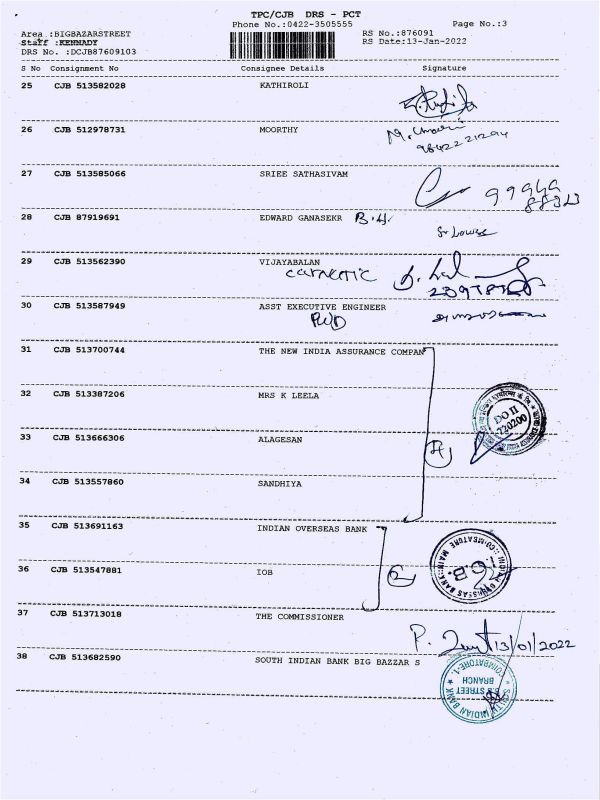 TPC/CJB DRS - PCT
Phone No.:0422-3505555 Page No.:3
Area :BIGBAZARSTREET RS No.:876091
Staff :KENNADY RS Date:13-Jan-2022
DRS No. :DCJB87609103
S No Consignment No Consignee Details Signature
25 CJB 513582028 KATHIROLI
26 CJB 512978731 MOORTHY
9842221294
27 CJB 513585066 SRIEE SATHASIVAM
28 CJB 87919691 EDWARD GANASEKR B.H.
29 CJB 513562390 VIJAYABALAN
30 CJB 513587949 ASST EXECUTIVE ENGINEER
PWD
31 CJB 513700744 THE NEW INDIA ASSURANCE COMPAN
32 CJB 513387206 MRS K LEELA
DO II
720200
33 CJB 513666306 ALAGESAN
34 CJB 513557860 SANDHIYA
35 CJB 513691163 INDIAN OVERSEAS BANK
INDIAN OVERSEAS BANK COIMBATORE MAIN
I.O.B.
36 CJB 513547881 IOB
37 CJB 513713018 THE COMMISSIONER
13/01/2022
38 CJB 513682590 SOUTH INDIAN BANK BIG BAZZAR S
SOUTH INDIAN BANK COIMBATORE-1.
B.B STREET
BRANCH